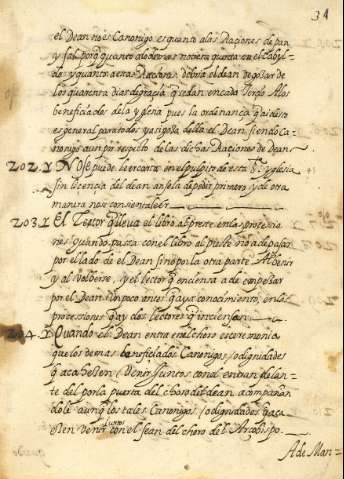 34
el Dean no es Canonigo es quanto a las Raciones de pan
y sal, porq quanto a lo demas no tiene quenta en el cabil-
do y quanto a estas Raciones deviera el dean de gozar de
los quarenta dias de gracia q se dan en cada tercio a los
beneficiados de la yglesia pues la ordenanca q a dello
es general para todos y assi goza della el Dean siendo ca-
nonigo aun por respecto de las dichas Raciones de dean
202. No se puede leer carta en el pulpito de esta Sta. yglesia
sin licencia del dean an sela de pedir primero y de otra
manera no se consiente leer
203. El Lector q lleva el libro al preste en las processio
nes quando passa con el libro al puesto no a de passar
por el lado de el Dean sino por la otra parte al venir
y al volverse, y el lector q enciensa a de empesar
por el Dean un poco antes q aya conocimiento, en las
processiones q ay dos lectores q inciensan
204. Quando el Dean entra en el choro es ceremonia
que los demas beneficiados Canonigos, o dignidades
q acaecen venir juntos con el entran delan-
te del por la puerta del choro del dean acompañan
dole aunq los tales Canonigos, o dignidades q aca
ecen venir juntos con el sean del choro del Arçobispo.
A de Man=